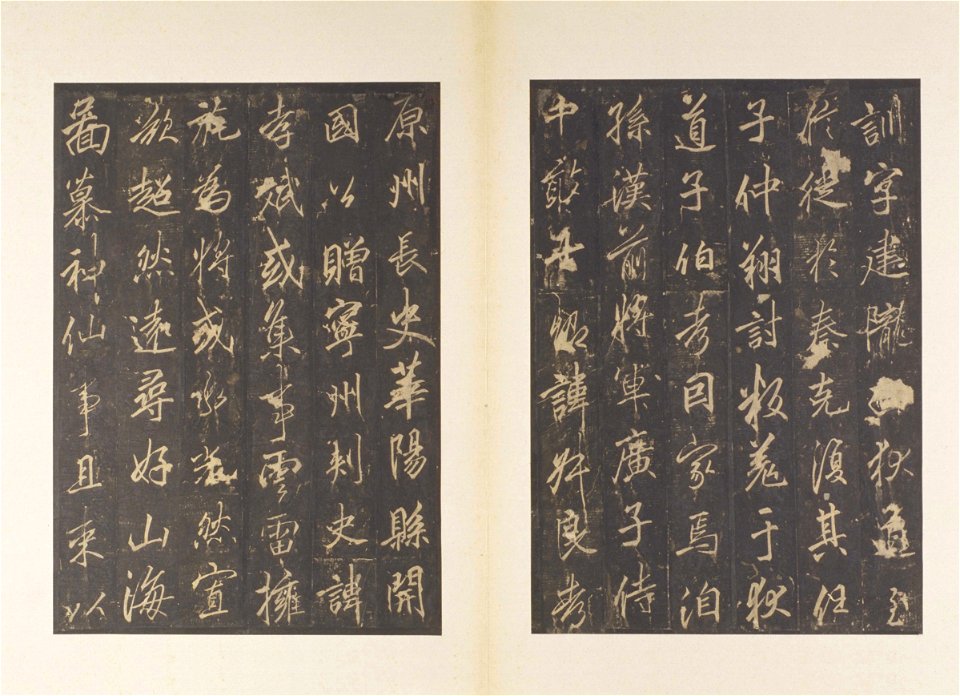 訓字建隴狄道至
於徙於秦克復其任
子仲翔討叛羌于狄
道子伯考因家焉洎
孫漢前將軍廣子侍
中敢諱良考
原州長史華陽縣開
國公贈寧州刺史諱
孝斌或集事雲雷擁
旄為將或然宣
超然遠尋好山海
圖慕神仙事且束以